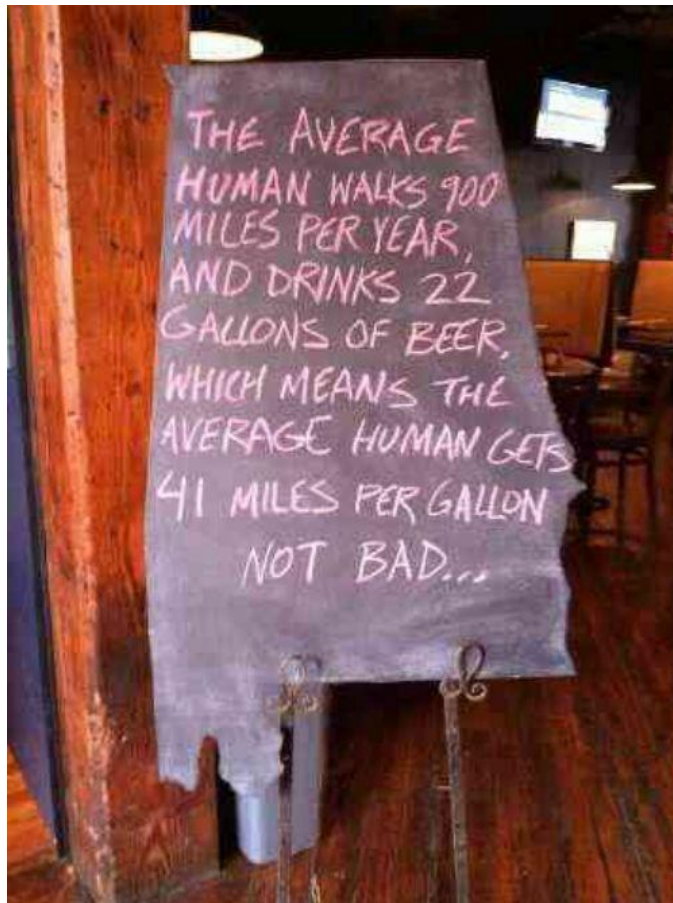 THE AVERAGE
HUMAN WALKS 900
MILES PER YEAR,
AND DRINKS 22
GALLONS OF BEER,
WHICH MEANS THE
AVERAGE HUMAN GETS
41 MILES PER GALLON
NOT BAD...